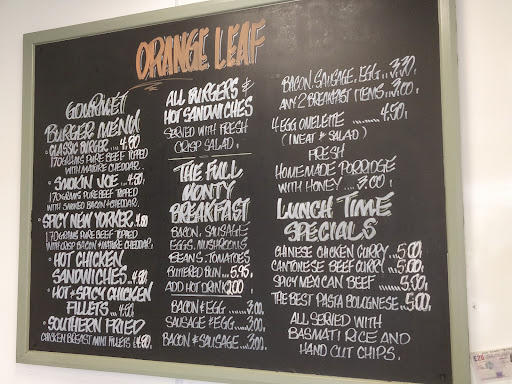 ORANGE LEAF
GOURMET
BURGER MENU
• CLASSIC BURGER.... 4.80
170GRAMS PURE BEEF TOPPED
WITH MATURE CHEDDAR.
• SMOKIN JOE...4.80.
170GRAMS PURE BEEF TOPPED
WITH SMOKED BACON & CHEDDAR.
• SPICY NEW YORKER. 4.80
170GRAMS PURE BEEF TOPPED
WITH CRISP BACON & MATURE CHEDDAR.
• HOT CHICKEN
SANDWICHES..4.80.
• HOT & SPICY CHICKEN
FILLETS .... 4.80.
• SOUTHERN FRIED
CHICKEN BREAST MINI FILLETS £4.80.
ALL BURGERS &
HOT SANDWICHES
SERVED WITH FRESH
CRISP SALAD.
THE FULL
MONTY
BREAKFAST
BACON. SAUSAGE
EGGS. MUSHROOMS
BEANS. TOMATOES
BUTTERED BUN....5.95.
ADD HOT DRINK 2.00
BACON & EGG.....3.00.
SAUSAGE & EGG....3.00.
BACON & SAUSAGE...3.00.
BACON, SAUSAGE, EGG...3.70.
ANY 2 BREAKFAST ITEMS...3.00.
4 EGG OMELETTE ........4.50.
(1 MEAT & SALAD)
FRESH
HOMEMADE PORRIDGE
WITH HONEY....3.00.
LUNCH TIME
SPECIALS
CHINESE CHICKEN CURRY...5.00.
CANTONESE BEEF CURRY....5.00.
SPICY MEXICAN BEEF ......5.00.
THE BEST PASTA BOLOGNESE..5.00.
ALL SERVED WITH
BASMATI RICE AND
HAND CUT CHIPS.